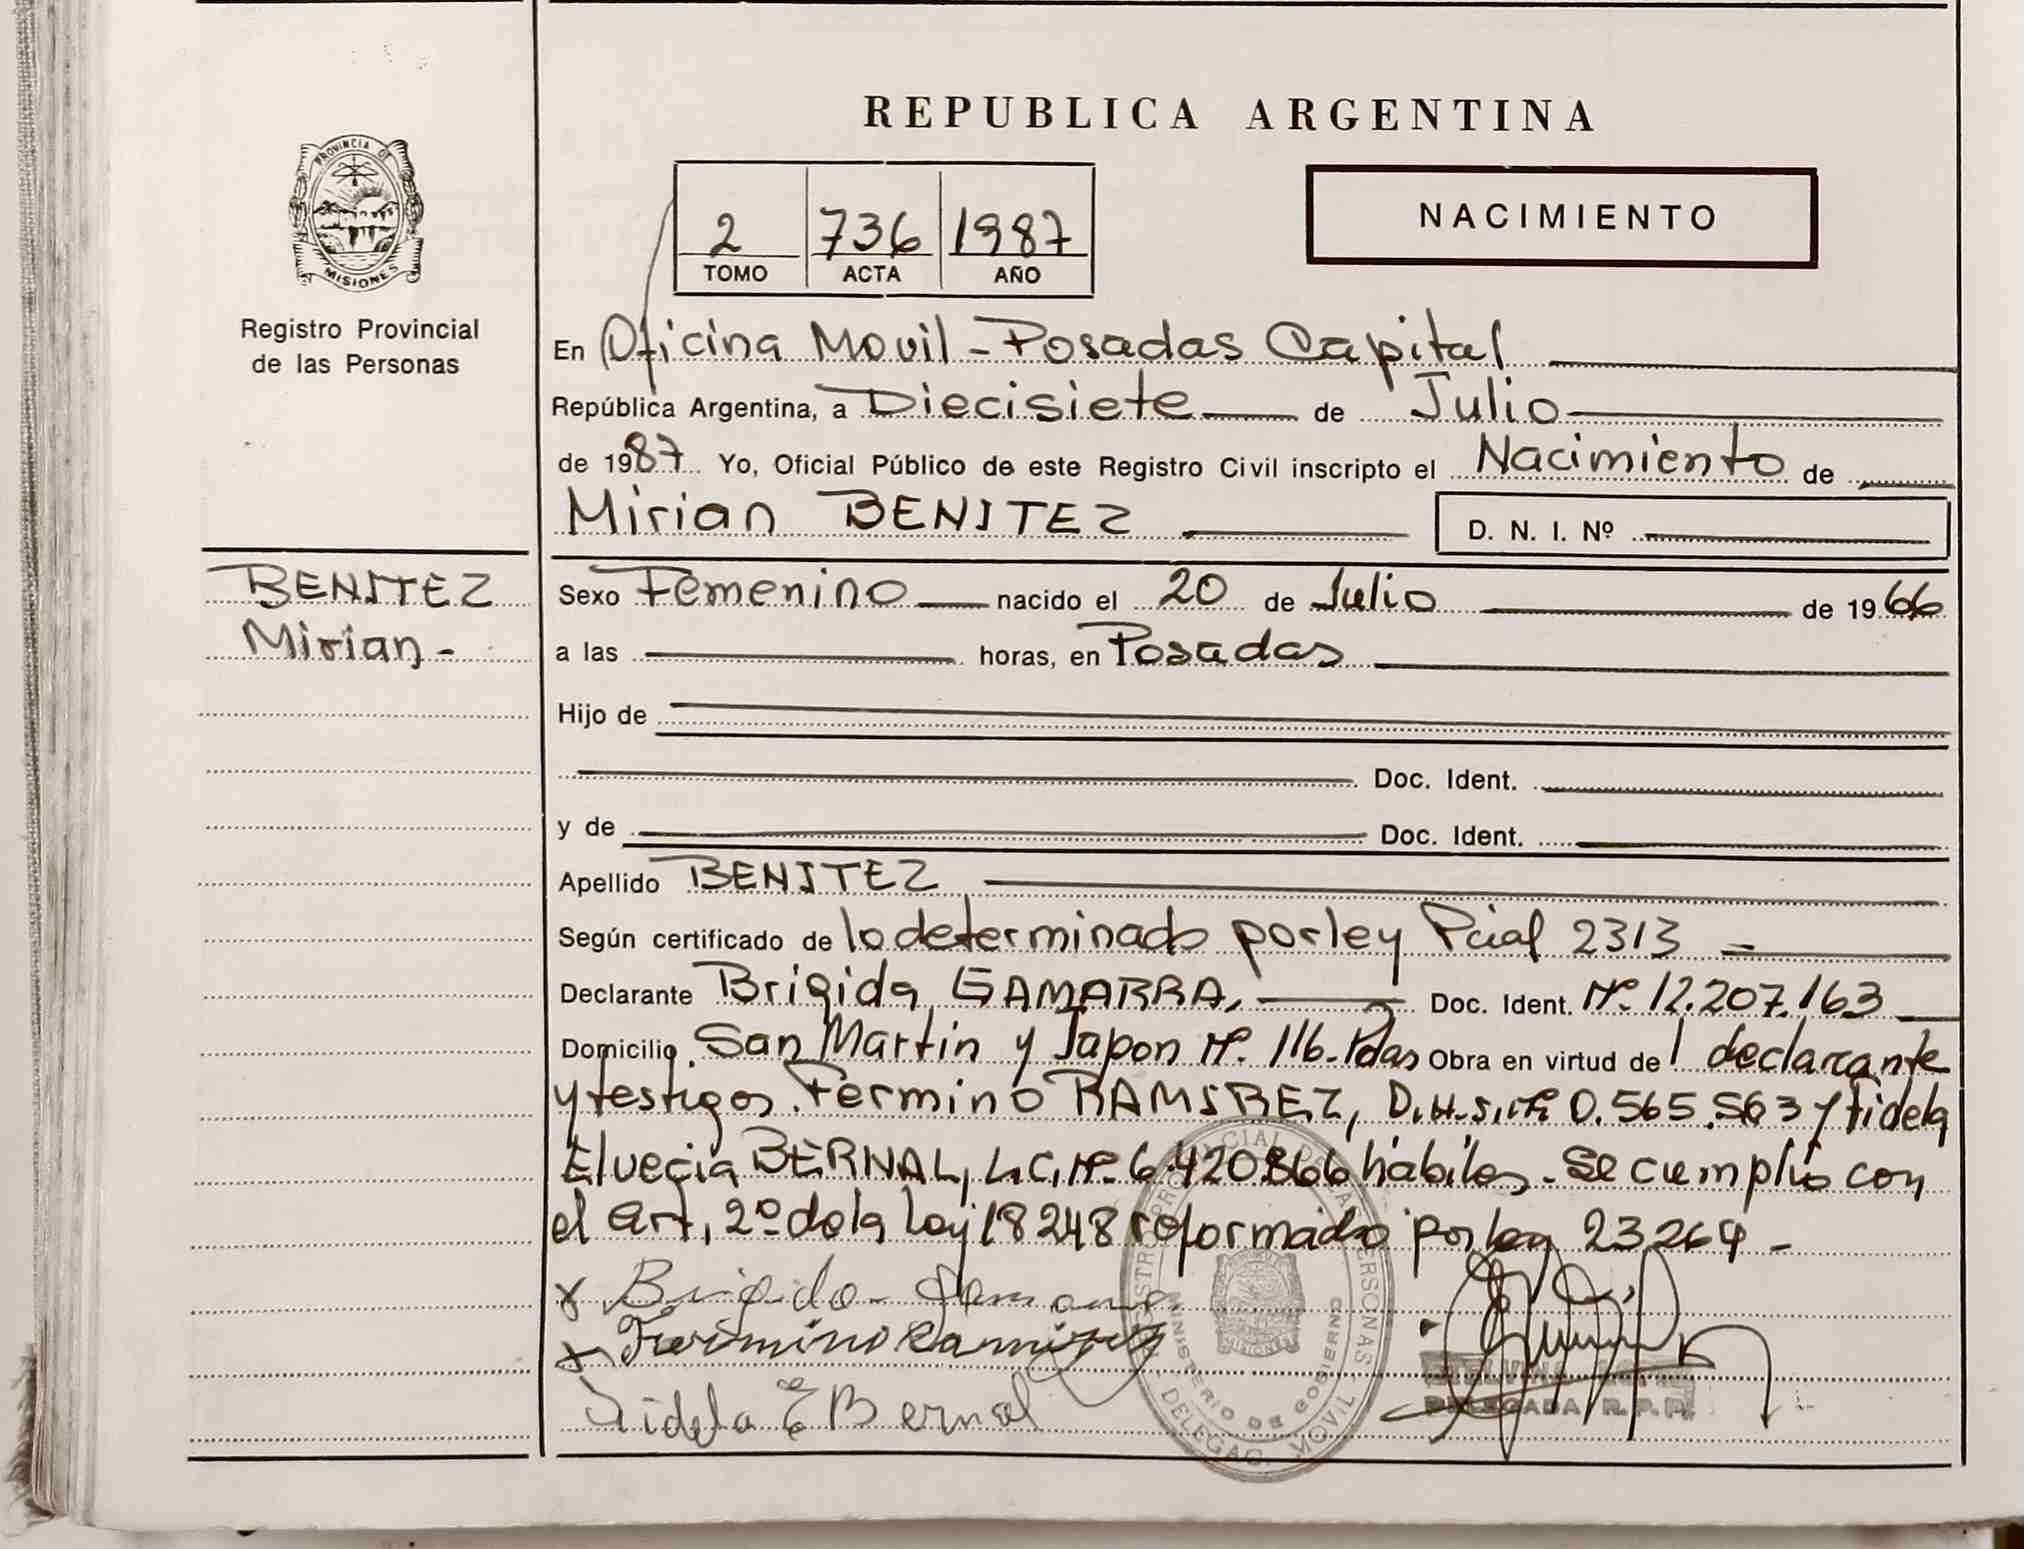 REPUBLICA ARGENTINA
PROVINCIA DE
MISIONES
Registro Provincial
de las Personas
2 736 1987
TOMO ACTA AÑO
NACIMIENTO
En Oficina Movil - Posadas Capital
República Argentina, a Diecisiete de Julio
de 1987 Yo, Oficial Público de este Registro Civil inscripto el Nacimiento de
Mirian BENITEZ D. N. I. Nº
BENITEZ
Mirian -
Sexo Femenino nacido el 20 de Julio de 1966
a las horas, en Posadas
Hijo de
Doc. Ident.
y de Doc. Ident.
Apellido BENITEZ
Según certificado de lo determinado por ley Pcial 2313
Declarante Brigida GAMARRA, Doc. Ident. Nº 12.207.163
Domicilio San Martin y Japon Nº 116 - Pdas Obra en virtud de l declarante
y testigos Fermino RAMIREZ, 0.565.563 y Fidela
Elvecia BERNAL, L.C. Nº 6.420.866 hábiles. Se cumplió con
el Art, 2º de la Ley 18248 reformado por ley 23264 -
x Brigida Gamarra
x Fermino Ramirez
Fidela E Bernal
REGISTRO PROVINCIAL DE LAS PERSONAS
MINISTERIO DE GOBIERNO
DELEGAC. MOVIL
DELEGADA R.P.P.